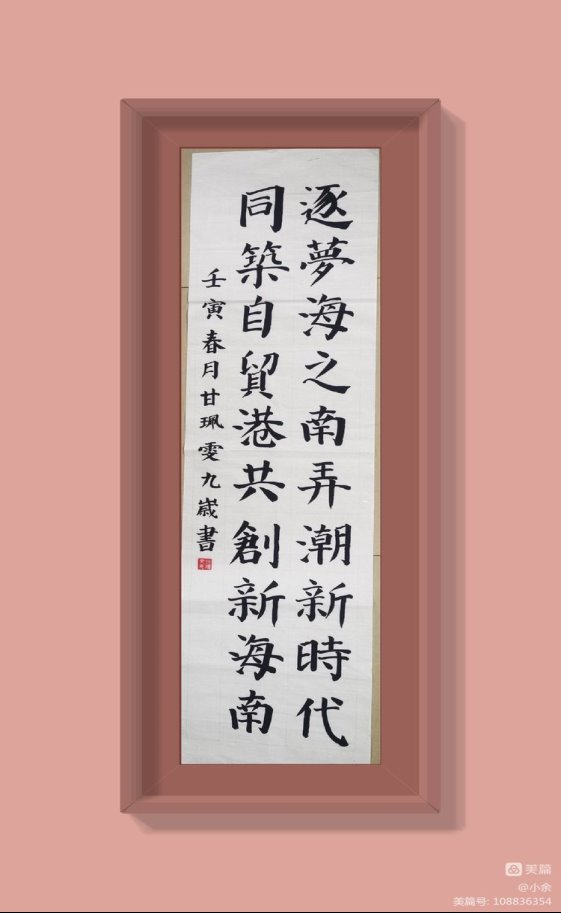 逐夢海之南弄潮新時代
同築自貿港共創新海南
壬寅春月甘珮雯九嵗書
美篇
@小余
美篇号: 108836354